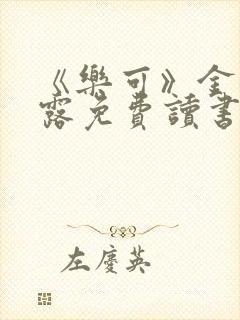 《樂可》金
露免費讀書
左慶英